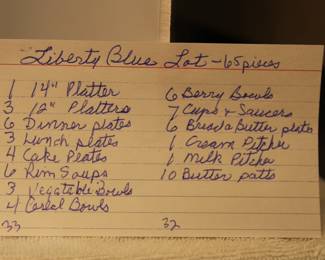 Liberty Blue Lot - 65 pieces
1 14" Platter
3 12" Platters
6 Dinner plates
3 Lunch plates
4 Cake Plates
6 Rim Soups
3 Vegatable Bowls
4 Cereal Bowls
33
6 Berry Bowls
7 Cups & Saucers
6 Bread & Butter plates
1 Cream Pitcher
1 Milk Pitcher
10 Butter patts
32